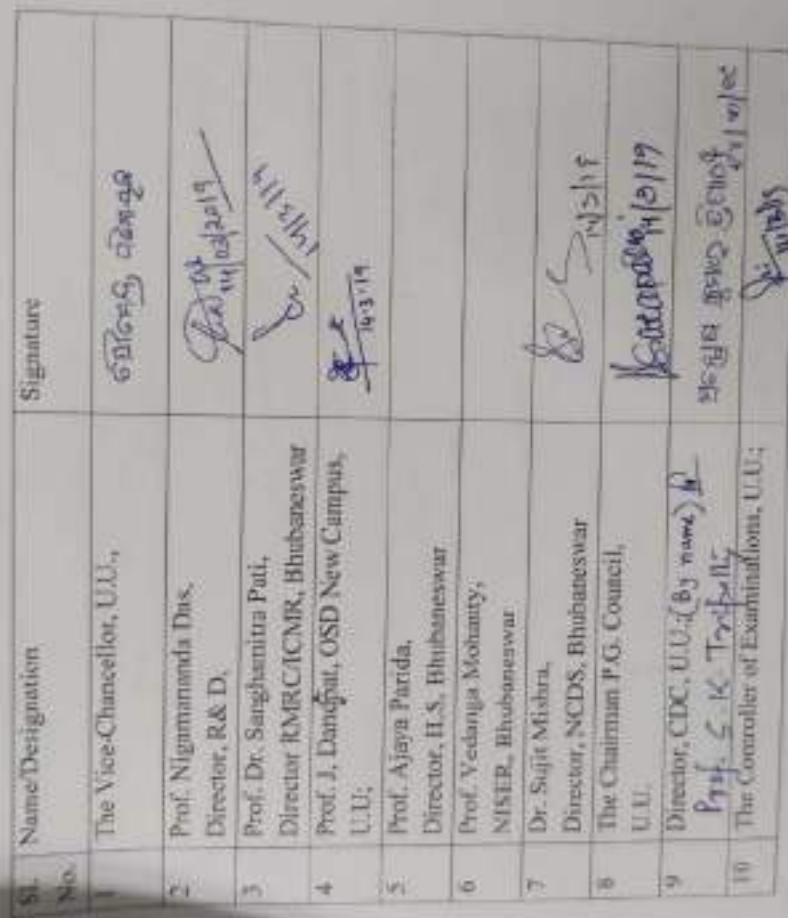 Sl. No. Name/Designation Signature
1 The Vice-Chancellor, U.U.,
2 Prof. Nigamananda Das, 14/03/2019
Director, R& D,
3 Prof. Dr. Sanghamitra Pati, 14/3/19
Director RMRC/ICMR, Bhubaneswar
4 Prof. J. Dandpat, OSD New Campus, 14.3.19
U.U;
5 Prof. Ajaya Parida,
Director, ILS, Bhubaneswar
6 Prof. Vedanga Mohanty,
NISER, Bhubaneswar
7 Dr. Sujit Mishra, 14/3/19
Director, NCDS, Bhubaneswar
8 The Chairman P.G. Council, 14/3/19
U.U.
9 Director, CDC, U.U.;(By name)
Prof. S. K Tripathy
10 The Controller of Examinations, U.U.;